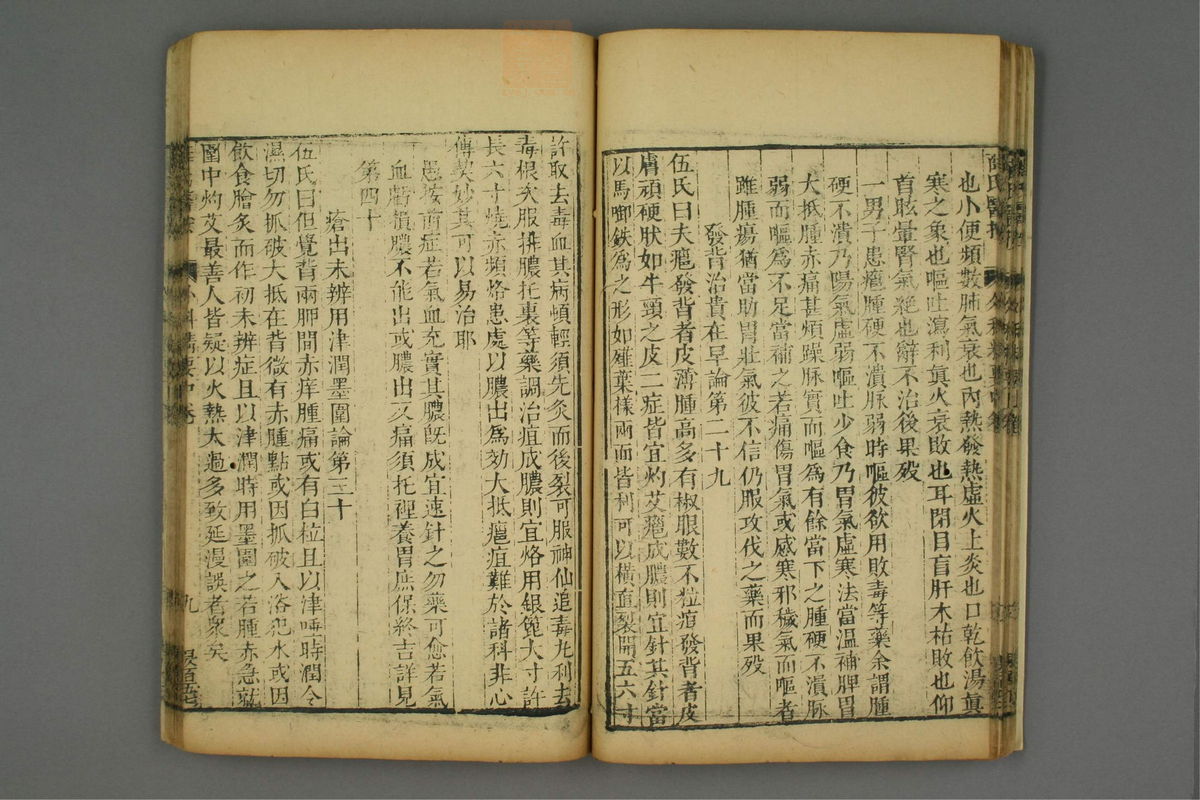 也小便頻數肺氣衰也內熱發熱虛火上炎也口乾飲湯眞
寒之象也嘔吐瀉利眞火衰敗也耳閉目盲肝木枯敗也仰
首眩暈腎氣絶也辭不治後果殁
一男子患癰腫硬不潰脉弱時嘔彼欲用敗毒等藥余謂腫
硬不潰乃陽氣虛弱嘔吐少食乃胃氣虛寒法當温補脾胃
大抵腫赤痛甚煩躁脉實而嘔爲有餘當下之腫硬不潰脉
弱而嘔爲不足當補之若痛傷胃氣或感寒邪穢氣而嘔者
雖腫瘍猶當助胃壯氣彼不信仍服攻伐之藥而果殁
發背治貴在早論第二十九
伍氏曰夫癰發背者皮薄腫高多有椒眼數不粒疽發背者皮
膚頑硬狀如牛頸之皮二症皆宜灼艾癰成膿則宜針其針當
以馬啣鉄爲之形如薤葉樣兩面皆利可以橫直裂開五六寸
許取去毒血其病頓輕須先灸而後裂可服神仙追毒丸利去
毒根次服排膿托裏等藥調治疽成膿則宜烙用銀篦大寸許
長六寸燒赤頻烙患處以膿出爲効大抵癰疽難於諸科非心
傳契妙其可以易治耶
愚按前症若氣血充實其膿旣成宜速針之勿藥可愈若氣
血虧損膿不能出或膿出又痛須托裡養胃庶保終吉詳見
第四十
瘡出未辨用津潤墨圍論第三十
伍氏曰但覺背兩胛間赤痒腫痛或有白粒且以津唾時潤令
濕切勿抓破大抵在背微有赤腫點或因抓破入浴犯水或因
飲食膾炙而作初未辨症且以津潤時用墨圍之若腫赤急就
圍中灼艾最善人皆疑以火熱太過多致延漫誤者衆矣
九